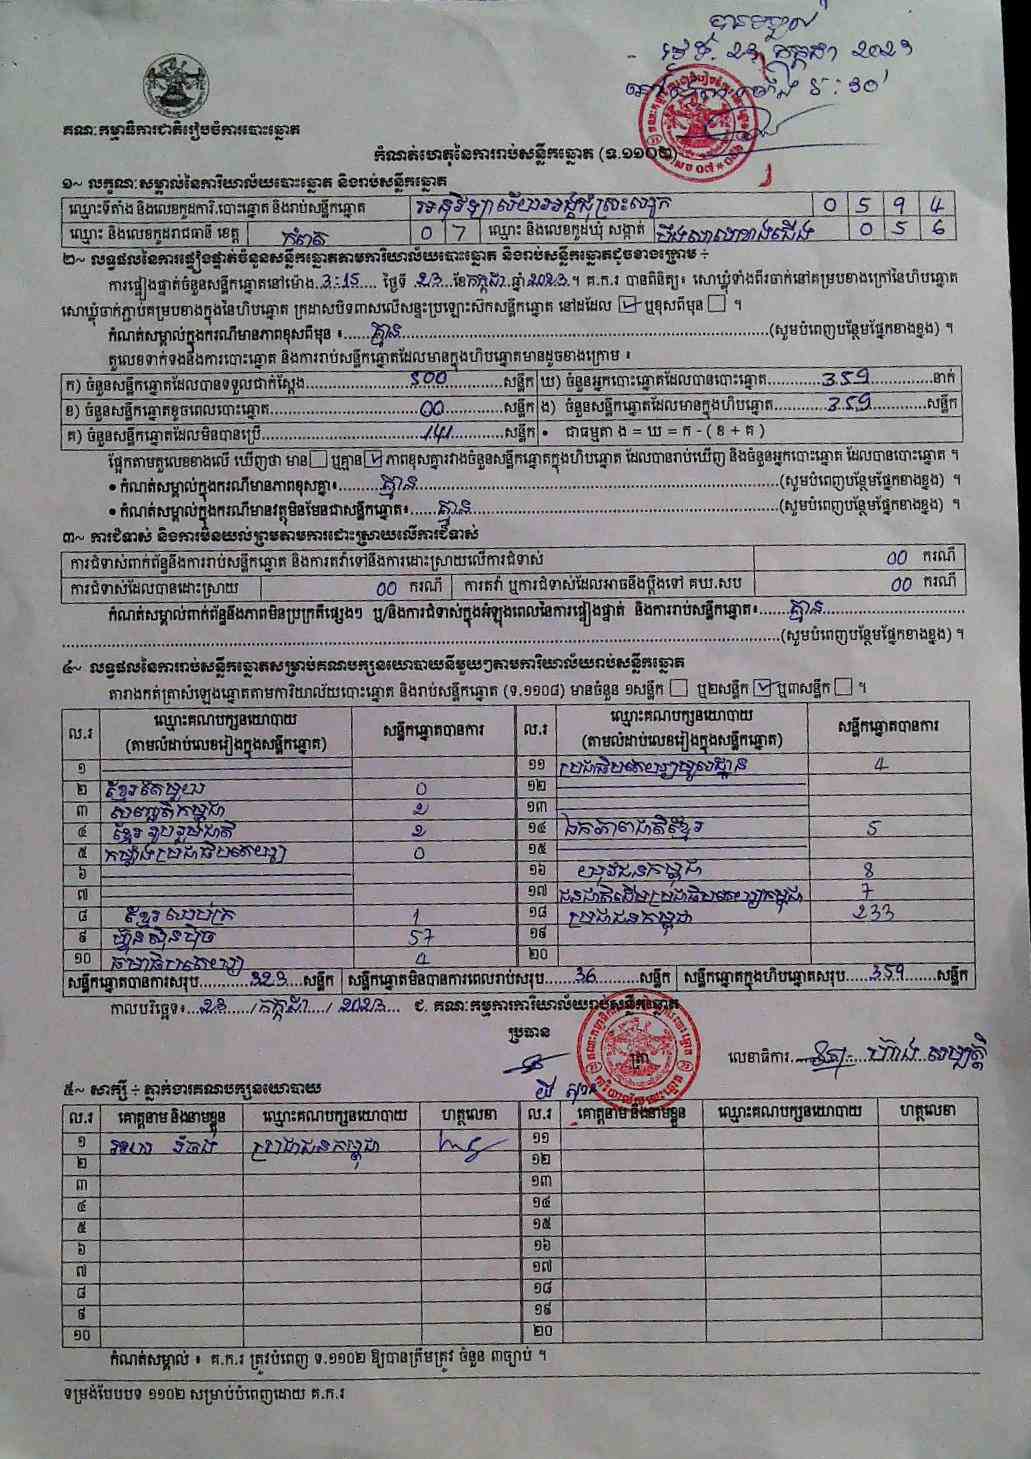 គណៈកម្មាធិការជាតិរៀបចំការបោះឆ្នោត
កំណត់ហេតុនៃការរាប់សន្លឹកឆ្នោត (ទ.១១០២)
១~ លក្ខណៈសម្គាល់នៃការិយាល័យបោះឆ្នោត និងរាប់សន្លឹកឆ្នោត
ឈ្មោះទីតាំង និងលេខកូដការិ.បោះឆ្នោត និងរាប់សន្លឹកឆ្នោត 0 5 9 4
ឈ្មោះ និងលេខកូដរាជធានី ខេត្ត កំពត 0 7 ឈ្មោះ និងលេខកូដឃុំ សង្កាត់ បឹងសាលាខាងជើង 0 5 6
២~ លទ្ធផលនៃការផ្ទៀងផ្ទាត់ចំនួនសន្លឹកឆ្នោតតាមការិយាល័យបោះឆ្នោត និងរាប់សន្លឹកឆ្នោតដូចខាងក្រោម ÷
ការផ្ទៀងផ្ទាត់ចំនួនសន្លឹកឆ្នោតនៅម៉ោង 3:15 ថ្ងៃទី 23 ខែកក្កដា ឆ្នាំ2023។ គ.ក.រ បានពិនិត្យ៖ សោឃ្លុំទាំងពីរចាក់នៅគម្របខាងក្រៅនៃហិបឆ្នោត
សោឃ្លុំចាក់ភ្ជាប់គម្របខាងក្នុងនៃហិបឆ្នោត ក្រដាសបិទពាសលើសន្ទះប្រឡោះស៊កសន្លឹកឆ្នោត នៅដដែល ☑ ឬខុសពីមុន ☐ ។
កំណត់សម្គាល់ក្នុងករណីមានភាពខុសពីមុន ៖ គ្មាន (សូមបំពេញបន្ថែមផ្នែកខាងខ្នង) ។
តួលេខទាក់ទងនឹងការបោះឆ្នោត និងការរាប់សន្លឹកឆ្នោតដែលមានក្នុងហិបឆ្នោតមានដូចខាងក្រោម ៖
ក) ចំនួនសន្លឹកឆ្នោតដែលបានទទួលជាក់ស្តែង 500 សន្លឹក ឃ) ចំនួនអ្នកបោះឆ្នោតដែលបានបោះឆ្នោត 359 នាក់
ខ) ចំនួនសន្លឹកឆ្នោតខូចពេលបោះឆ្នោត 00 សន្លឹក ង) ចំនួនសន្លឹកឆ្នោតដែលមានក្នុងហិបឆ្នោត 359 សន្លឹក
គ) ចំនួនសន្លឹកឆ្នោតដែលមិនបានប្រើ 141 សន្លឹក • ជាធម្មតា ង = ឃ = ក - ( ខ + គ )
ផ្អែកតាមតួលេខខាងលើ ឃើញថា មាន ☐ ឬគ្មាន ☑ ភាពខុសគ្នារវាងចំនួនសន្លឹកឆ្នោតក្នុងហិបឆ្នោត ដែលបានរាប់ឃើញ និងចំនួនអ្នកបោះឆ្នោត ដែលបានបោះឆ្នោត ។
• កំណត់សម្គាល់ក្នុងករណីមានភាពខុសគ្នា៖ គ្មាន (សូមបំពេញបន្ថែមផ្នែកខាងខ្នង) ។
• កំណត់សម្គាល់ក្នុងករណីមានវត្ថុមិនមែនជាសន្លឹកឆ្នោត៖ គ្មាន (សូមបំពេញបន្ថែមផ្នែកខាងខ្នង) ។
៣~ ការជំទាស់ និងការមិនយល់ព្រមតាមការដោះស្រាយលើការជំទាស់
ការជំទាស់ពាក់ព័ន្ធនឹងការរាប់សន្លឹកឆ្នោត និងការតវ៉ាទៅនឹងការដោះស្រាយលើការជំទាស់ 00 ករណី
ការជំទាស់ដែលបានដោះស្រាយ 00 ករណី ការតវ៉ា ឬការជំទាស់ដែលអាចនឹងប្តឹងទៅ គឃ.សប 00 ករណី
កំណត់សម្គាល់ពាក់ព័ន្ធនឹងភាពមិនប្រក្រតីផ្សេងៗ ឬ/និងការជំទាស់ក្នុងអំឡុងពេលនៃការផ្ទៀងផ្ទាត់ និងការរាប់សន្លឹកឆ្នោត៖ គ្មាន
(សូមបំពេញបន្ថែមផ្នែកខាងខ្នង) ។
៤~ លទ្ធផលនៃការរាប់សន្លឹកឆ្នោតសម្រាប់គណបក្សនយោបាយនីមួយៗតាមការិយាល័យរាប់សន្លឹកឆ្នោត
តារាងកត់ត្រាសំឡេងឆ្នោតតាមការិយាល័យបោះឆ្នោត និងរាប់សន្លឹកឆ្នោត (ទ.១១០៨) មានចំនួន ១សន្លឹក ☐ ឬ២សន្លឹក ☑ ឬ៣សន្លឹក ☐ ។
ល.រ ឈ្មោះគណបក្សនយោបាយ (តាមលំដាប់លេខរៀងក្នុងសន្លឹកឆ្នោត) សន្លឹកឆ្នោតបានការ ល.រ ឈ្មោះគណបក្សនយោបាយ (តាមលំដាប់លេខរៀងក្នុងសន្លឹកឆ្នោត) សន្លឹកឆ្នោតបានការ
១ ១១ ប្រជាធិបតេយ្យមូលដ្ឋាន 4
២ ខ្មែរតែមួយ 0 ១២
៣ សញ្ជាតិកម្ពុជា 2 ១៣
៤ ខ្មែររួបរួមជាតិ 2 ១៤ ឯកភាពជាតិខ្មែរ 5
៥ កម្លាំងប្រជាធិបតេយ្យ 0 ១៥
៦ ១៦ យុវជនកម្ពុជា 8
៧ ១៧ ជនជាតិដើមប្រជាធិបតេយ្យកម្ពុជា 7
៨ ខ្មែរឈប់ក្រ 1 ១៨ ប្រជាជនកម្ពុជា 233
៩ ហ៊្វុនស៊ិនប៉ិច 57 ១៩
១០ ធម្មាធិបតេយ្យ 4 ២០
សន្លឹកឆ្នោតបានការសរុប 323 សន្លឹក សន្លឹកឆ្នោតមិនបានការពេលរាប់សរុប 36 សន្លឹក សន្លឹកឆ្នោតក្នុងហិបឆ្នោតសរុប 359 សន្លឹក
កាលបរិច្ឆេទ៖ 23 / កក្កដា / 2023 ជ. គណៈកម្មការការិយាល័យរាប់សន្លឹកឆ្នោត
ប្រធាន
ត្រា
លេខាធិការ
៥~ សាក្សី ÷ ភ្នាក់ងារគណបក្សនយោបាយ
ល.រ គោត្តនាម និងនាមខ្លួន ឈ្មោះគណបក្សនយោបាយ ហត្ថលេខា ល.រ គោត្តនាម និងនាមខ្លួន ឈ្មោះគណបក្សនយោបាយ ហត្ថលេខា
១ ប្រជាជនកម្ពុជា ១១
២ ១២
៣ ១៣
៤ ១៤
៥ ១៥
៦ ១៦
៧ ១៧
៨ ១៨
៩ ១៩
១០ ២០
កំណត់សម្គាល់ ៖ គ.ក.រ ត្រូវបំពេញ ទ.១១០២ ឱ្យបានត្រឹមត្រូវ ចំនួន ៣ច្បាប់ ។
ទម្រង់បែបបទ ១១០២ សម្រាប់បំពេញដោយ គ.ក.រ